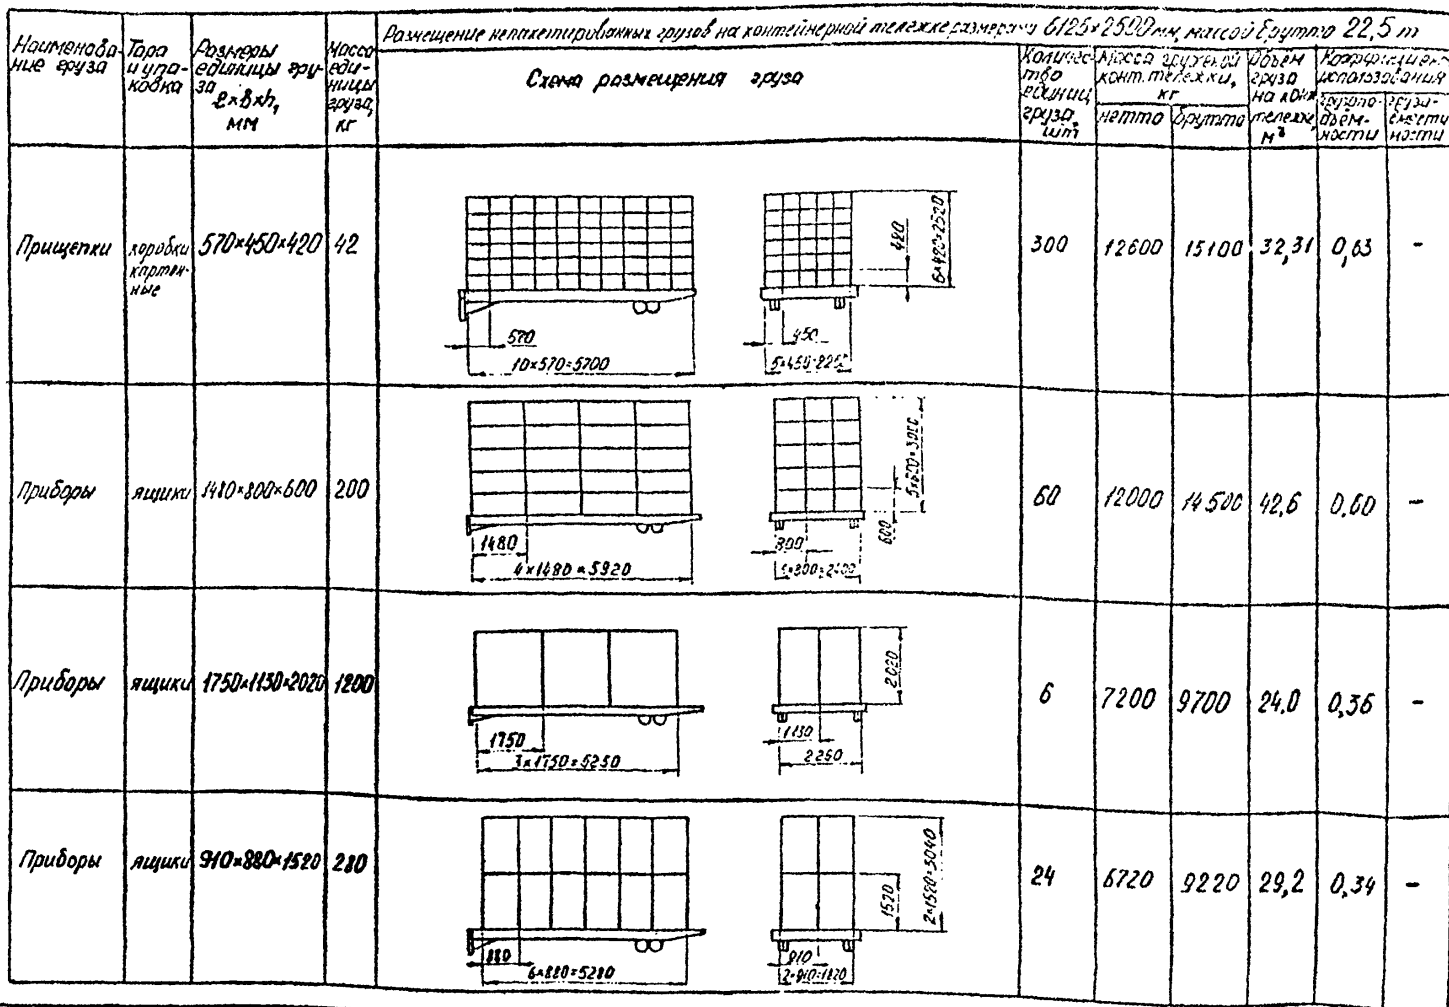 Размещение непакетированных грузов на контейнерной тележке размером 6125×2500 мм, массой брутто 22,5 т
Наименова-
ние груза
Тара
и упа-
ковка
Размеры
единицы гру-
за
l×b×h,
мм
Масса
еди-
ницы
груза,
кг
Схема размещения груза
Количес-
тво
единиц
груза,
шт
Масса груженой
конт. тележки,
кг
нетто
брутто
Объем
груза
на конт.
тележке,
м³
Коэффициент
использования
грузпо-
дъём-
ности
грузи-
вмести
мости
Прищепки
коробки
картон-
ные
570×450×420
42
570
10×570=5700
450
5×450=225
420
6×420=2520
300
12600
15100
32,31
0,63
-
Приборы
ящики
1480×800×600
200
1480
4×1480=5920
800
3×800=2400
600
5×600=3000
60
12000
14500
42,6
0,60
-
Приборы
ящики
1750×1130×2020
1200
1750
3×1750=5250
1130
2260
2020
6
7200
9700
24,0
0,36
-
Приборы
ящики
910×880×1520
280
880
6×880=5280
910
2×910=1820
1520
2×1520=3040
24
6720
9220
29,2
0,34
-